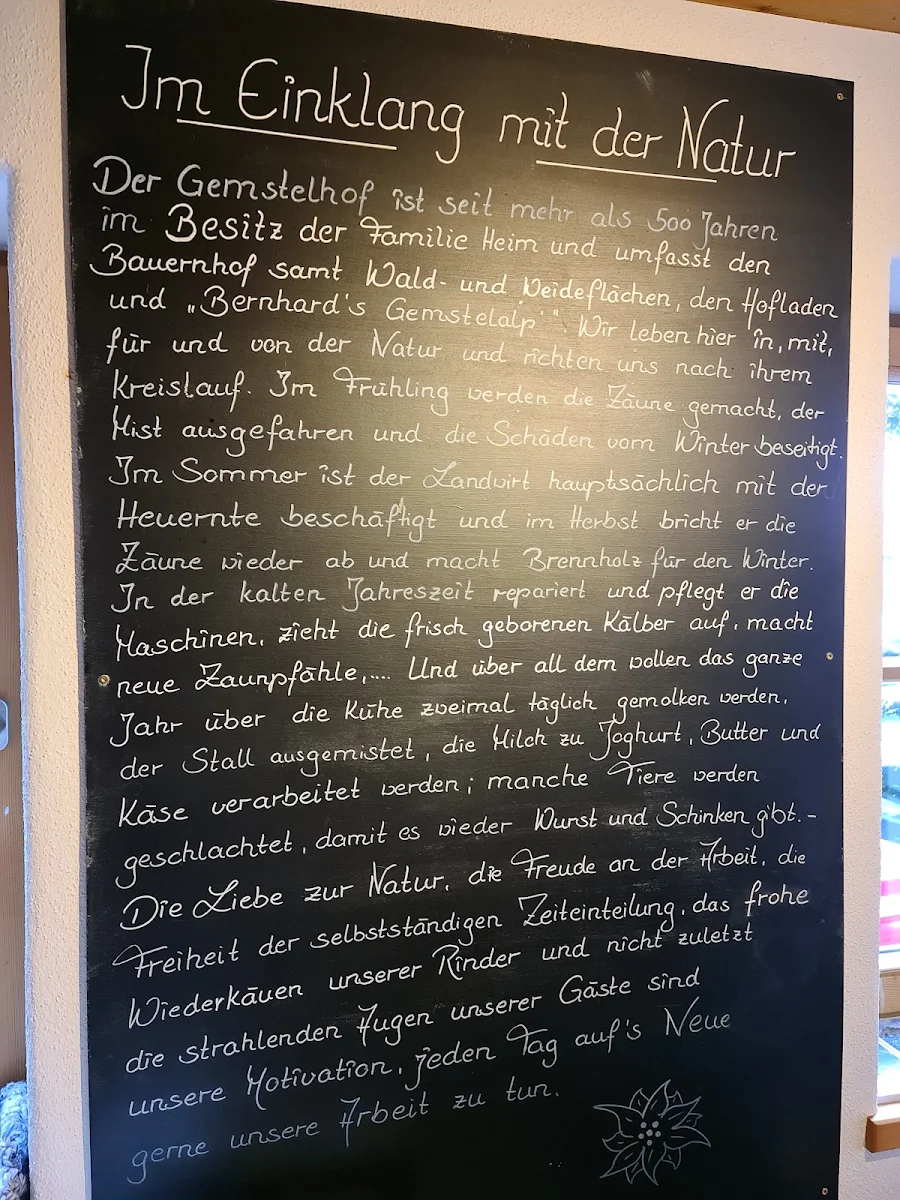 Im Einklang mit der Natur
Der Gemstelhof ist seit mehr als 500 Jahren
im Besitz der Familie Heim und umfasst den
Bauernhof samt Wald- und Weideflächen, den Hofladen
und „Bernhard's Gemstelalp". Wir leben hier in, mit,
für und von der Natur und richten uns nach ihrem
Kreislauf. Im Frühling werden die Zäune gemacht, der
Mist ausgefahren und die Schäden vom Winter beseitigt.
Im Sommer ist der Landwirt hauptsächlich mit der
Heuernte beschäftigt und im Herbst bricht er die
Zäune wieder ab und macht Brennholz für den Winter.
In der kalten Jahreszeit repariert und pflegt er die
Maschinen, zieht die frisch geborenen Kälber auf, macht
neue Zaunpfähle,.... Und über all dem wollen das ganze
Jahr über die Kühe zweimal täglich gemolken werden,
der Stall ausgemistet, die Milch zu Joghurt, Butter und
Käse verarbeitet werden; manche Tiere werden
geschlachtet, damit es wieder Wurst und Schinken gibt. -
Die Liebe zur Natur, die Freude an der Arbeit, die
Freiheit der selbstständigen Zeiteinteilung, das frohe
Wiederkäuen unserer Rinder und nicht zuletzt
die strahlenden Augen unserer Gäste sind
unsere Motivation, jeden Tag auf's Neue
gerne unsere Arbeit zu tun.